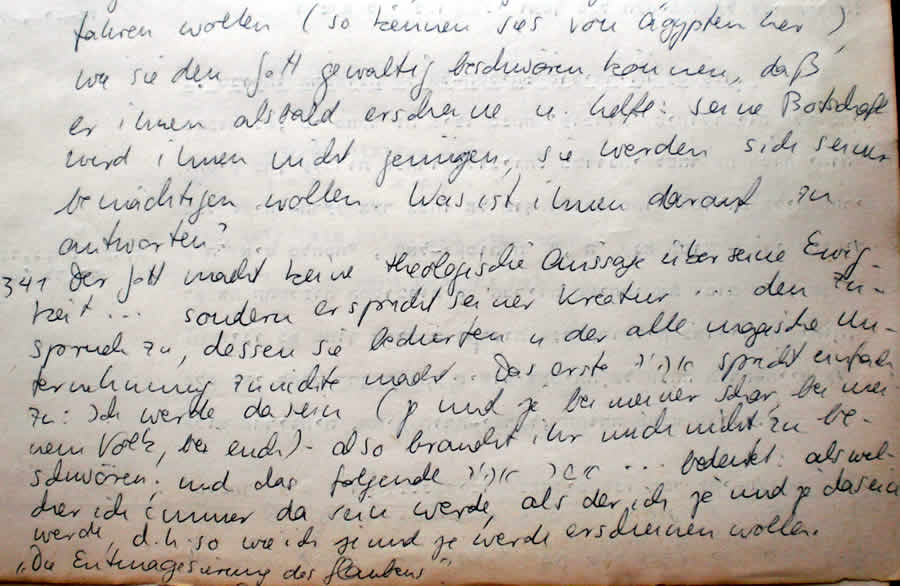 fahren wollen (so können sies von Ägypten her),
wie sie den Gott gewaltig beschwören können, daß
er ihnen alsbald erscheine u. helfe: seine Botschaft
wird ihnen nicht genügen, sie werden sich seiner
bemächtigen wollen. Was ist ihnen darauf zu
antworten?
341 Der Gott macht keine theologische Aussage über seine Ewig-
keit ... sondern er spricht seiner Kreatur ... den Zu-
spruch zu, dessen sie bedürfen u der alle magische Un-
ternehmung zunichte macht. Das erste אהיה spricht einfach
zu: Ich werde dasein (je und je bei meiner Schar, bei mei-
nem Volk, bei euch) - also braucht ihr mich nicht zu be-
schwören. und das folgende אשר אהיה ... bedeutet: als wel-
cher ich immer da sein werde, als der ich je und je dasein
werde, d.h. so wie ich je und je werde erscheinen wollen.
"Die Entmagisierung des Glaubens"